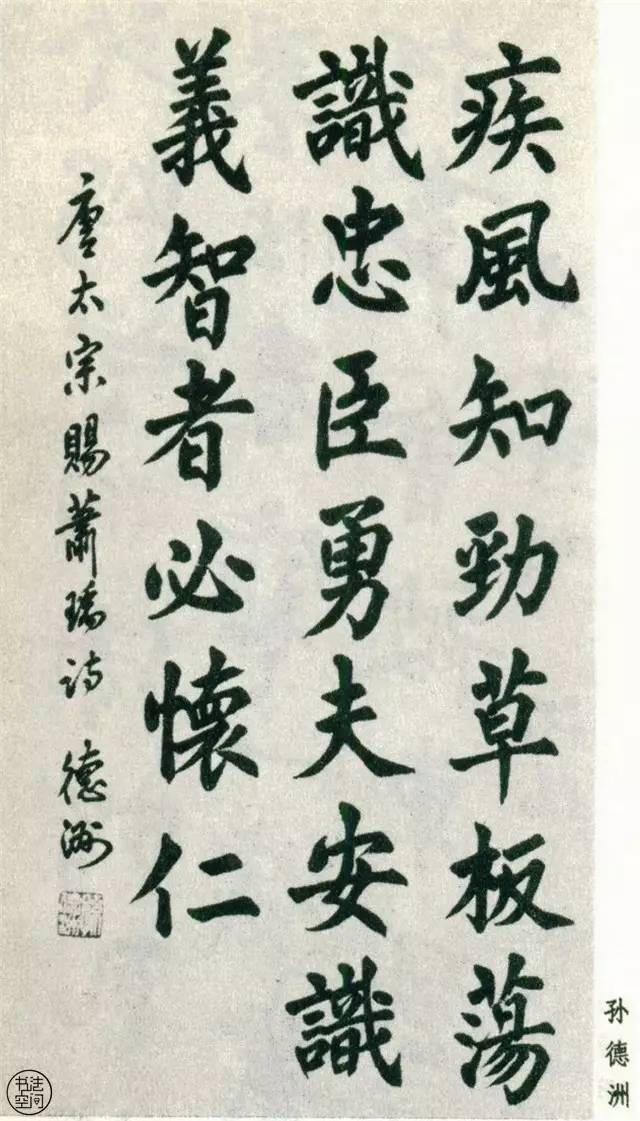 疾風知勁草板蕩
識忠臣勇夫安識
義智者必懷仁
唐太宗賜蕭瑀诗 德洲
孙德洲
书法
空间